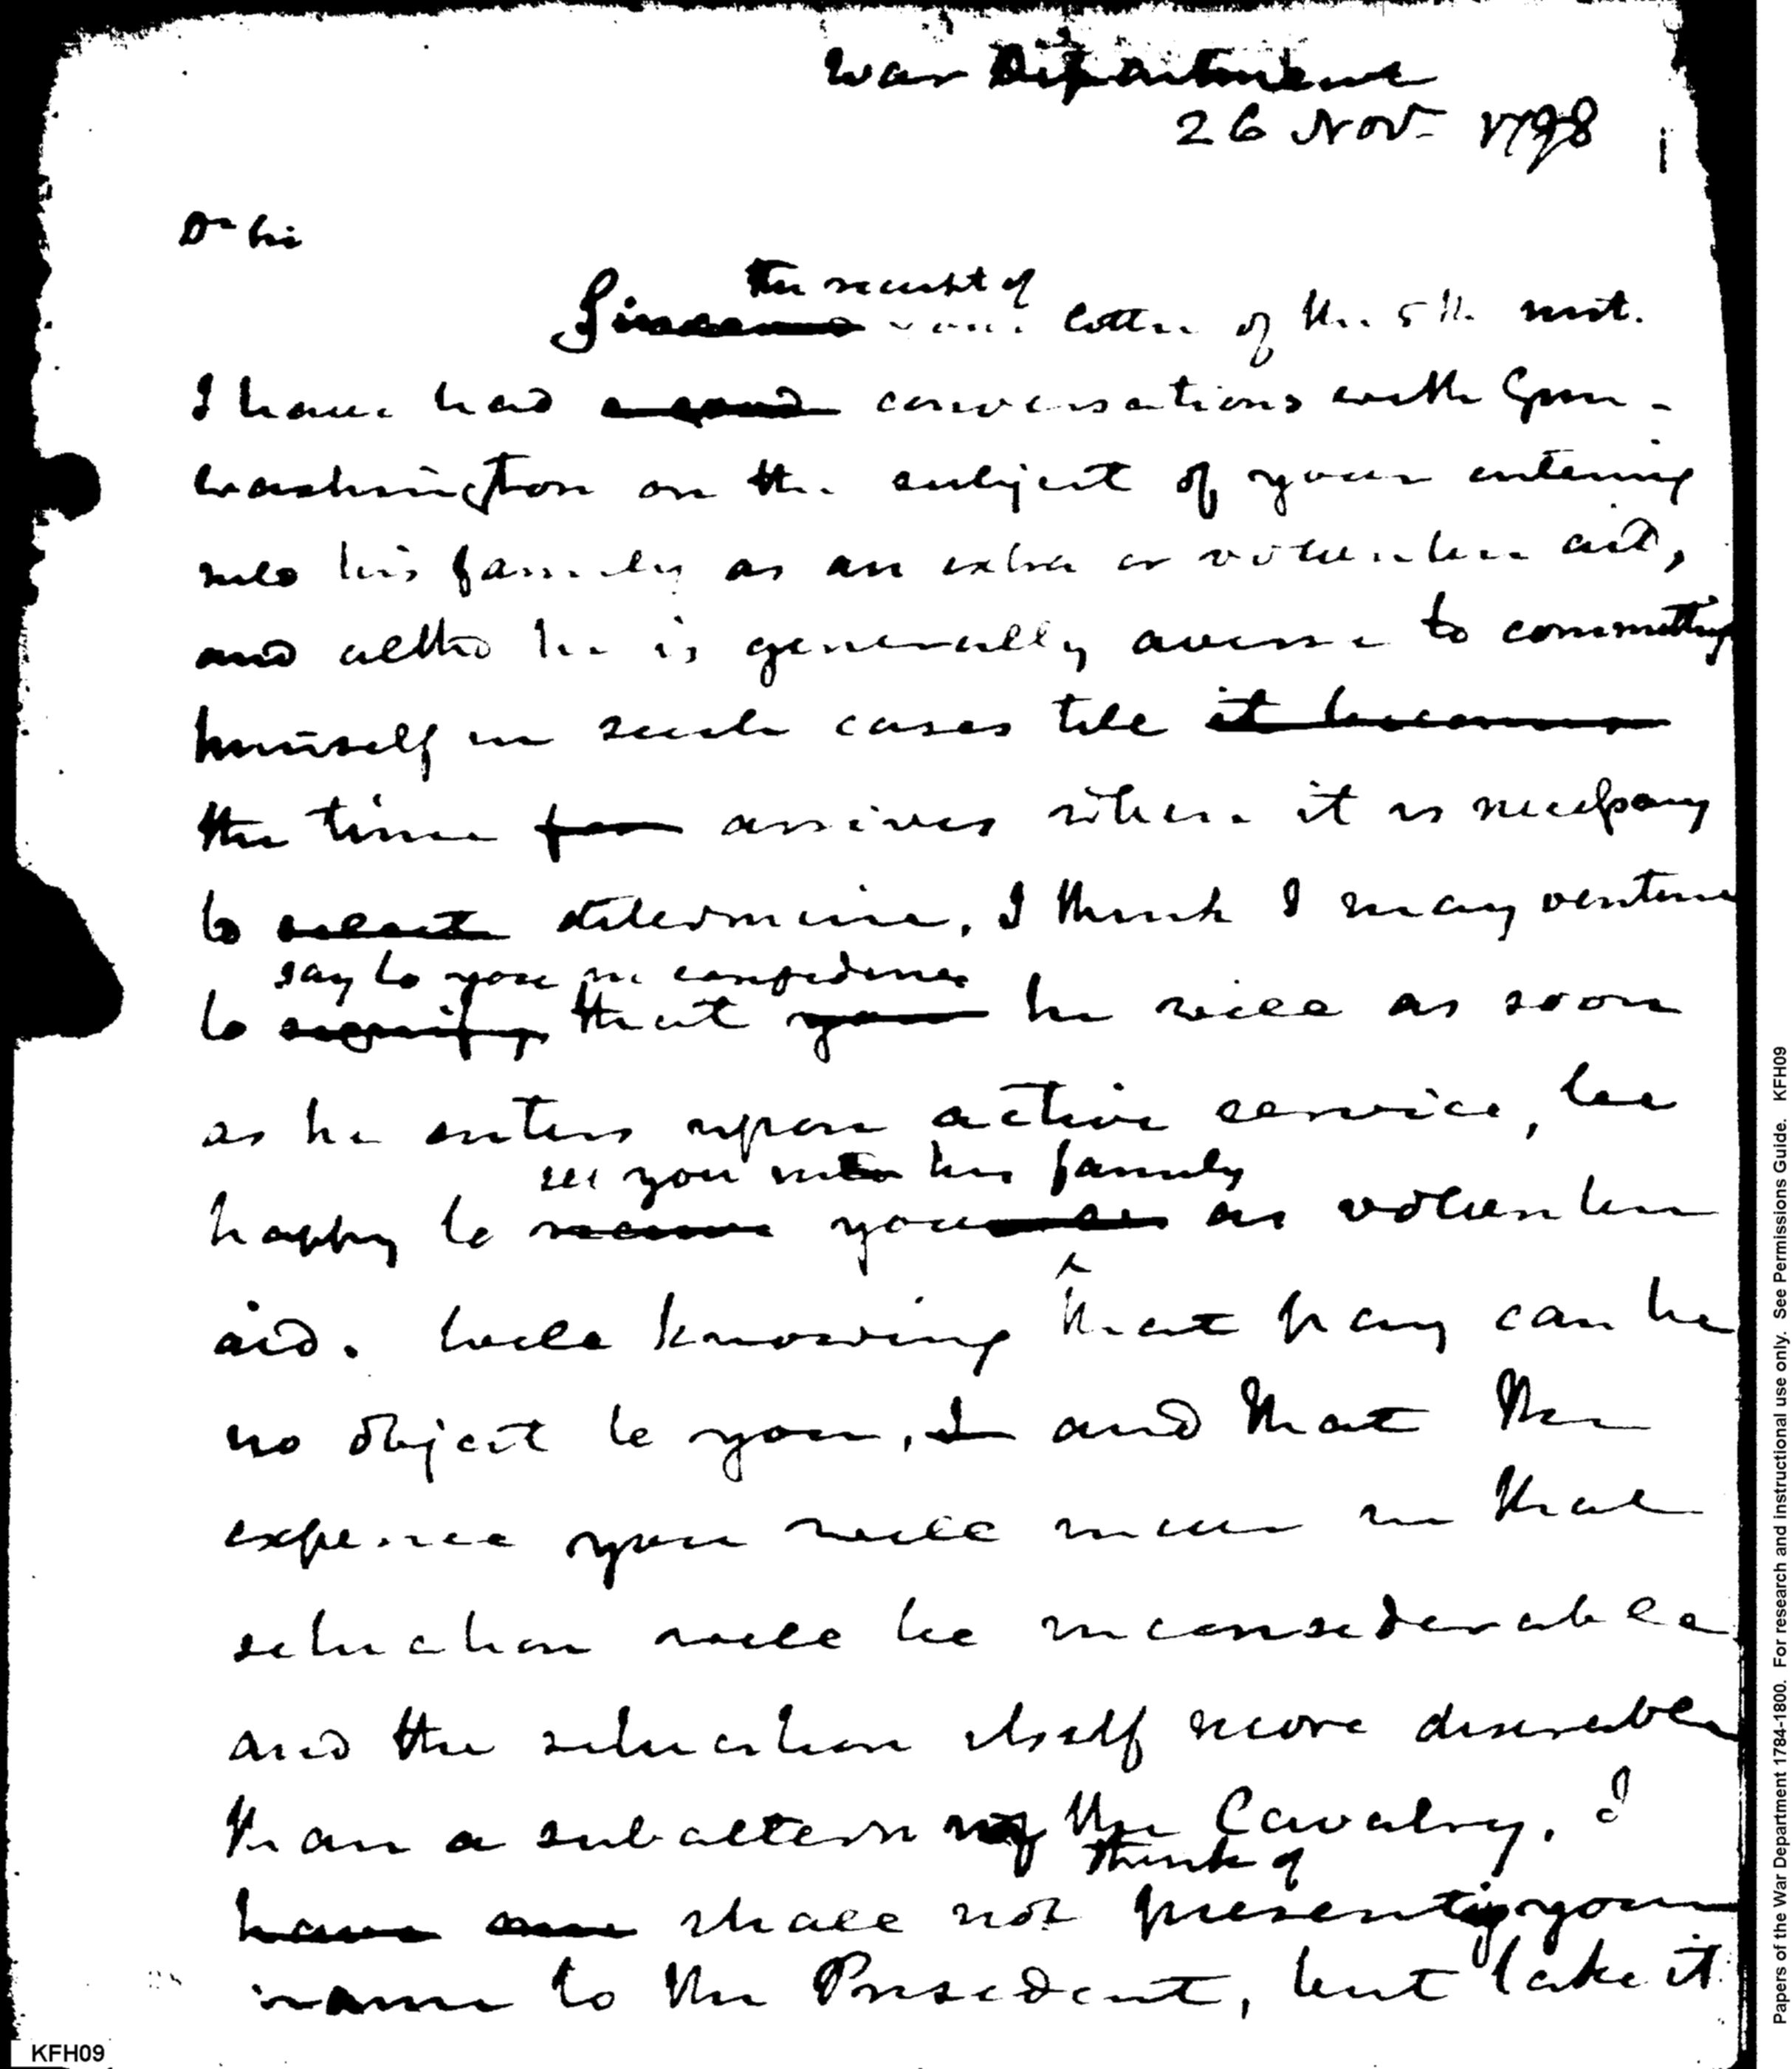 War Department
26 Nov. 1798
Dr Sir
the receipt of
Since your letter of the 5th inst.
I have had conversations with Gen.
Washington on the subject of your entering
into his family as an extra or volunteer aid,
and altho he is generally averse to committing
himself in such cases till it becomes
the time for arrives when it is necessary
to select determine, I think I may venture
say to you in confidence
to signify that you he will as soon
as he enters upon active service, be
see you into his family
happy to receive you as as volunteer
aid. Well knowing that pay can be
no object to you, I and that the
expence you will incur in that
situation will be inconsiderable
and the situation itself more desireable
than a subaltern of the Cavalry, I
think of
have shall not presenting your
name to the President, but take it
KFH09
Papers of the War Department 1784-1800. For research and instructional use only. See Permissions Guide. KFH09